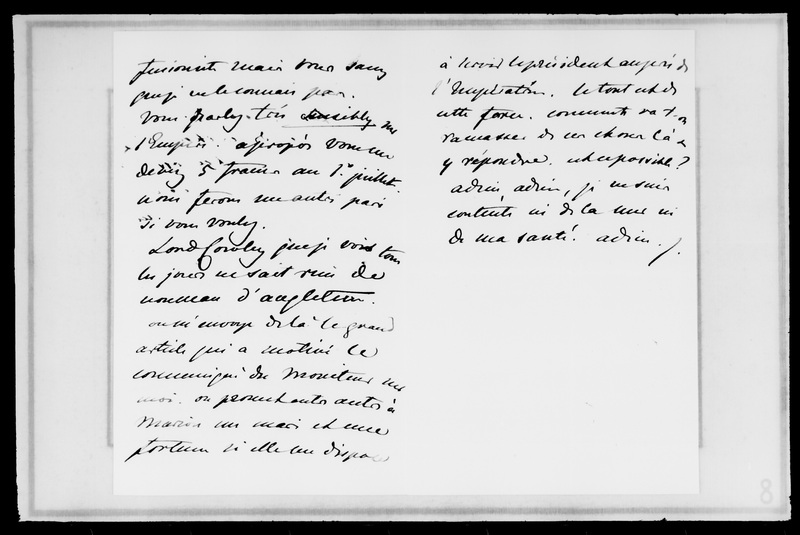 fusionniste mais vous savez
que je ne le connais pas.
vous parlez très sensibly sur
l'Empire. à propos vous me
devez 5 francs au 1er juillet.
nous ferons un autre pari
si vous voulez.
Lord Cowley que je vois tous
les jours ne sait rien de
nouveau d'angleterre.
on m'envoye de là le grand
article qui a motivé le
communiqué du Moniteur sur
moi. on promet entre autres à
Marion un mari et une
fortune si elle me dispose
à servir le président auprès de
l'Empereur. le tout est de
cette force. comment va t-on
ramasser de ces choses là et
y répondre. est-ce possible?
adieu adieu, je ne suis
contente ni de la mer ni
de ma santé. adieu.
8